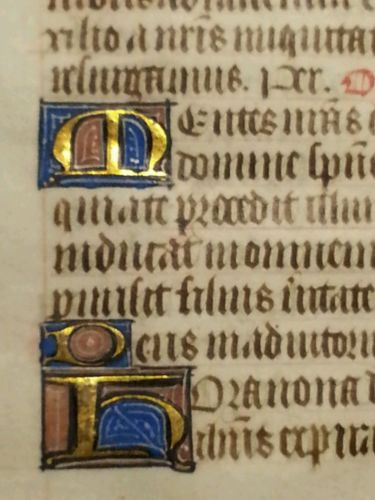 xilio a nr̄is iniquitat
resurgamus. Per. O
MEntes nr̄as
domine spūs
qui a te procedit illum
inducat in omnem
promisit filius veritate
Deus in adiutoriu
HOra nona d
ih̄us expira